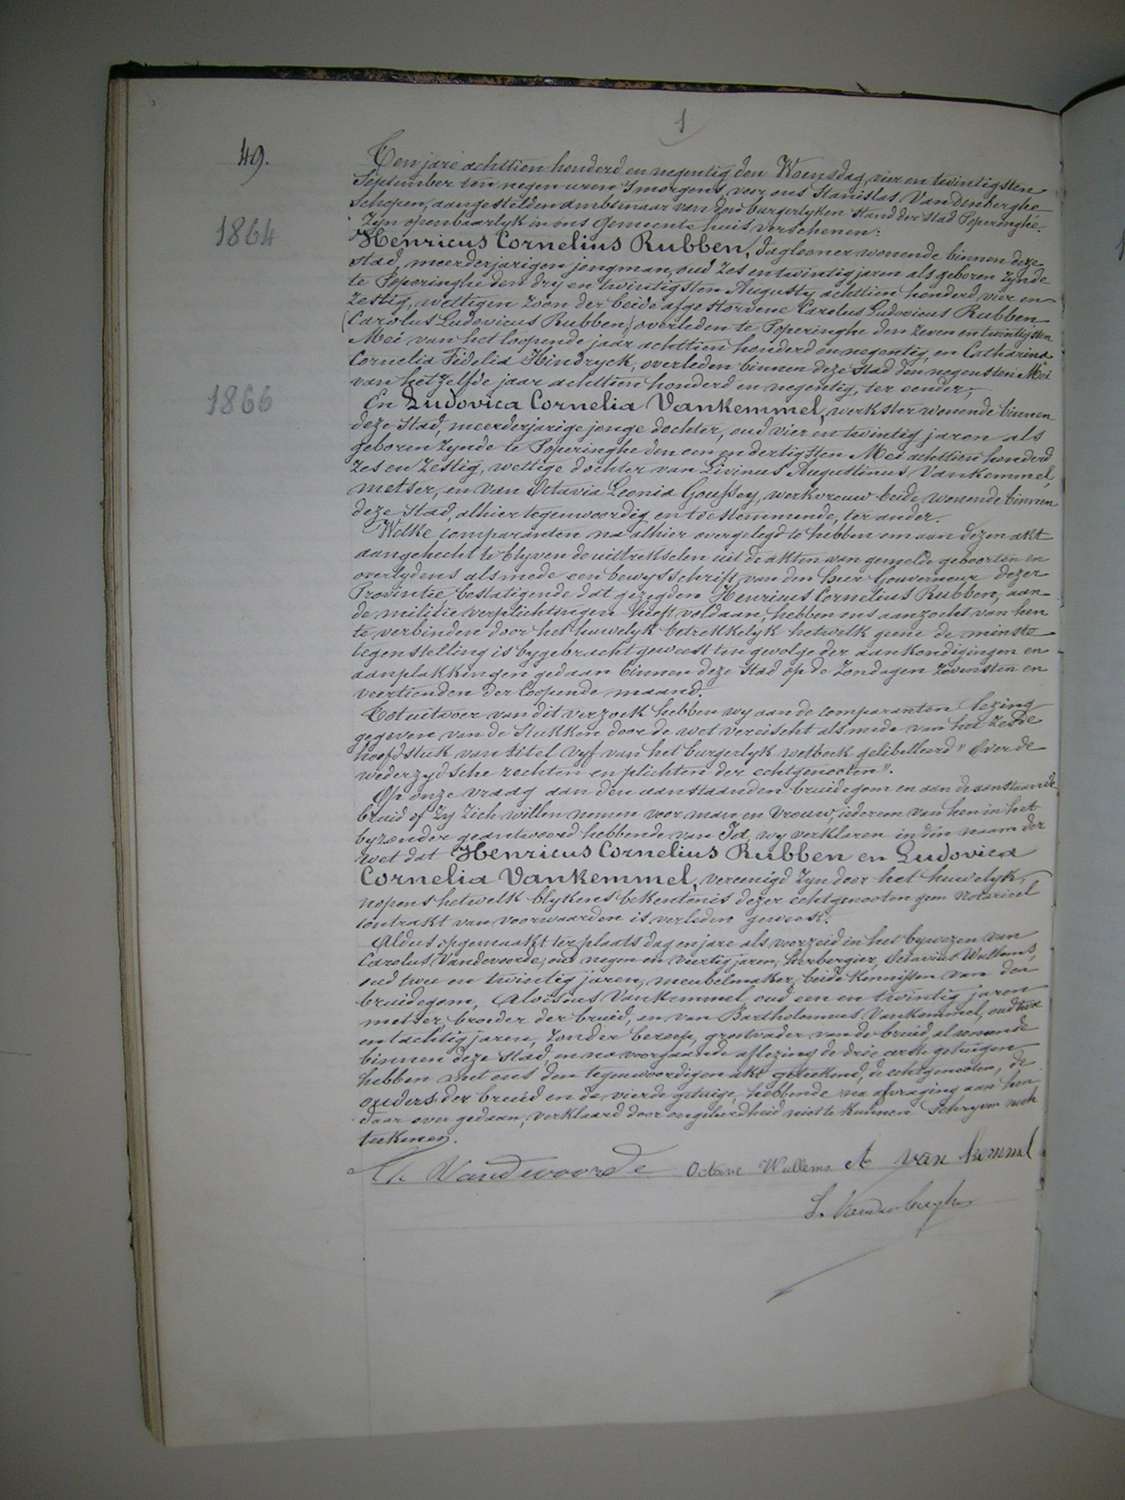 1
49.
1864
1866
Ten jare achttien honderd en negentig den Woensdag, vier en twintigsten
September ten negen uren 's morgens, voor ons Stanislas Vandenberghe
Schepen, aangestelden ambtenaar van den burgerlyken stand der Stad Poperinghe.
Zyn openbaarlyk in ons Gemeentehuis verschenen:
Henricus Cornelius Rubben, daglooner wonende binnen deze
stad, meerderjarigen jongman, oud zes en twintig jaren als geboren zynde
te Poperinghe den dry en twintigsten Augusty achttien honderd vier en
Zestig, wettigen zoon der beide afgestorvene Carolus Ludovicus Rubben
(Carolus Ludovicus Rubben,) overleden te Poperinghe den zeven en twintigsten
Mei van het loopende jaar achttien honderd en negentig, en Catharina
Cornelia Fidelia Hindryck, overleden binnen deze Stad den negensten Mei
van het zelfde jaar achttien honderd en negentig, ter eender,
En Ludovica Cornelia Vankemmel, werkster wonende binnen
deze Stad, meerderjarige jonge dochter, oud vier en twintig jaren als
geboren zynde te Poperinghe den een en dertigsten Mei achttien honderd
zes en Zestig, wettige dochter van Livinus Augustinus Vankemmel,
metser, en van Octavia Leonia Goussey, werkvrouw beide wonende binnen
deze Stad, alhier tegenwoordig en toestemmende, ter ander.
Welke comparanten na alhier overgelegd te hebben om aan dezen akt
aangehecht te blyven de uittrekselen uit de akten van gemelde geboorten en
overlydens alsmede een bewysschrift van den heer Gouverneur dezer
Provintie bestatigende dat gezegden Henricus Cornelius Rubben, aan
de militie verplichtingen heeft voldaan, hebben ons aanzocht van hen
te verbinden door het huwelyk betrekkelyk hetwelk geene de minste
tegenstelling is bygebracht geweest ten gevolge der aankondigingen en
aanplakkingen gedaan binnen deze Stad op de Zondagen Zevensten en
veertienden der loopende maand.
Tot uitvoer van dit verzoek hebben wy aan de comparanten lezing
gegeven van de stukken door de wet vereischt als mede van het zesde
hoofdstuk van titel vyf van het burgerlyk wetboek gelibelleerd "Over de
wederzydsche rechten en plichten der echtgenooten".
Op onze vraag aan den aanstaanden bruidegom en aan de aanstaande
bruid of zy zich willen nemen voor man en vrouw, iedereen van hen in het
byzonder geantwoord hebbende van Ja, wy verklaren in den naam der
wet dat Henricus Cornelius Rubben en Ludovica
Cornelia Vankemmel, vereenigd zyn door het huwelyk,
nopens hetwelk blykens bekentenis dezer echtgenooten geen notarieel
contrakt van voorwaarden is verleden geweest.
Aldus opgemaakt ter plaats dag en jare als voorzeid in het bywezen van
Carolus Vandevoorde, oud negen en veertig jaren, herbergier, Octavius Wullems,
oud twee en twintig jaren, meubelmaker, beide kennissen van den
bruidegom, Aloisius Vankemmel oud een en twintig jaren
metser, broeder der bruid, en van Bartholomeus Vankemmel, oud
en tachtig jaren, zonder beroep, grootvader van de bruid, al wonende
binnen deze Stad, en na voorgaande aflezing de drie eerste getuigen
hebben met ons den tegenwoordigen akt geteekend, de echtgenooten, de
ouders der bruid en de vierde getuige, hebbende na afvraging aan hen
daar over gedaan, verklaard door ongeleerdheid niet te kunnen Schryven noch
teekenen.
Vandevoorde Octave Wullems A van kemmel
S. Vandenberghe